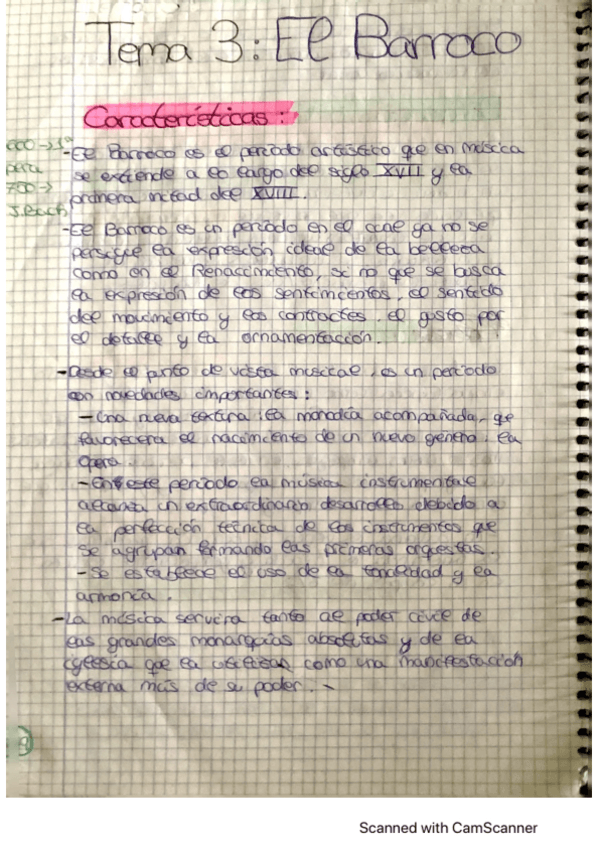 Tema 3: El Barroco
Características:
-El Barroco es el período artístico que en música
se extiende a lo largo del siglo XVII y la
primera mitad del XVIII.
-El Barroco es un período en el cual ya no se
persigue la expresión ideal de la belleza
como en el Renacimiento, si no que se busca
la expresión de los sentimientos, el sentido
del movimiento y los contractes, el gusto por
el detalle y la ornamentación.
-Desde el punto de vista musical, es un período
con novedades importantes:
-Una nueva textura, la monodía acompañada, que
favorecerá el nacimiento de un nuevo género, la
ópera.
-En este período la música instrumental
alcanza un extraordinario desarrollo debido a
la perfección técnica de los instrumentos que
se agrupan formando las primeras orquestas.
-Se establece el uso de la tonalidad y la
armonía.
-La música servirá tanto al poder civil de
las grandes monarquías absolutas y de la
iglesia que la utilizan como una manifestación
externa más de su poder.-
J.Bach
Scanned with CamScanner